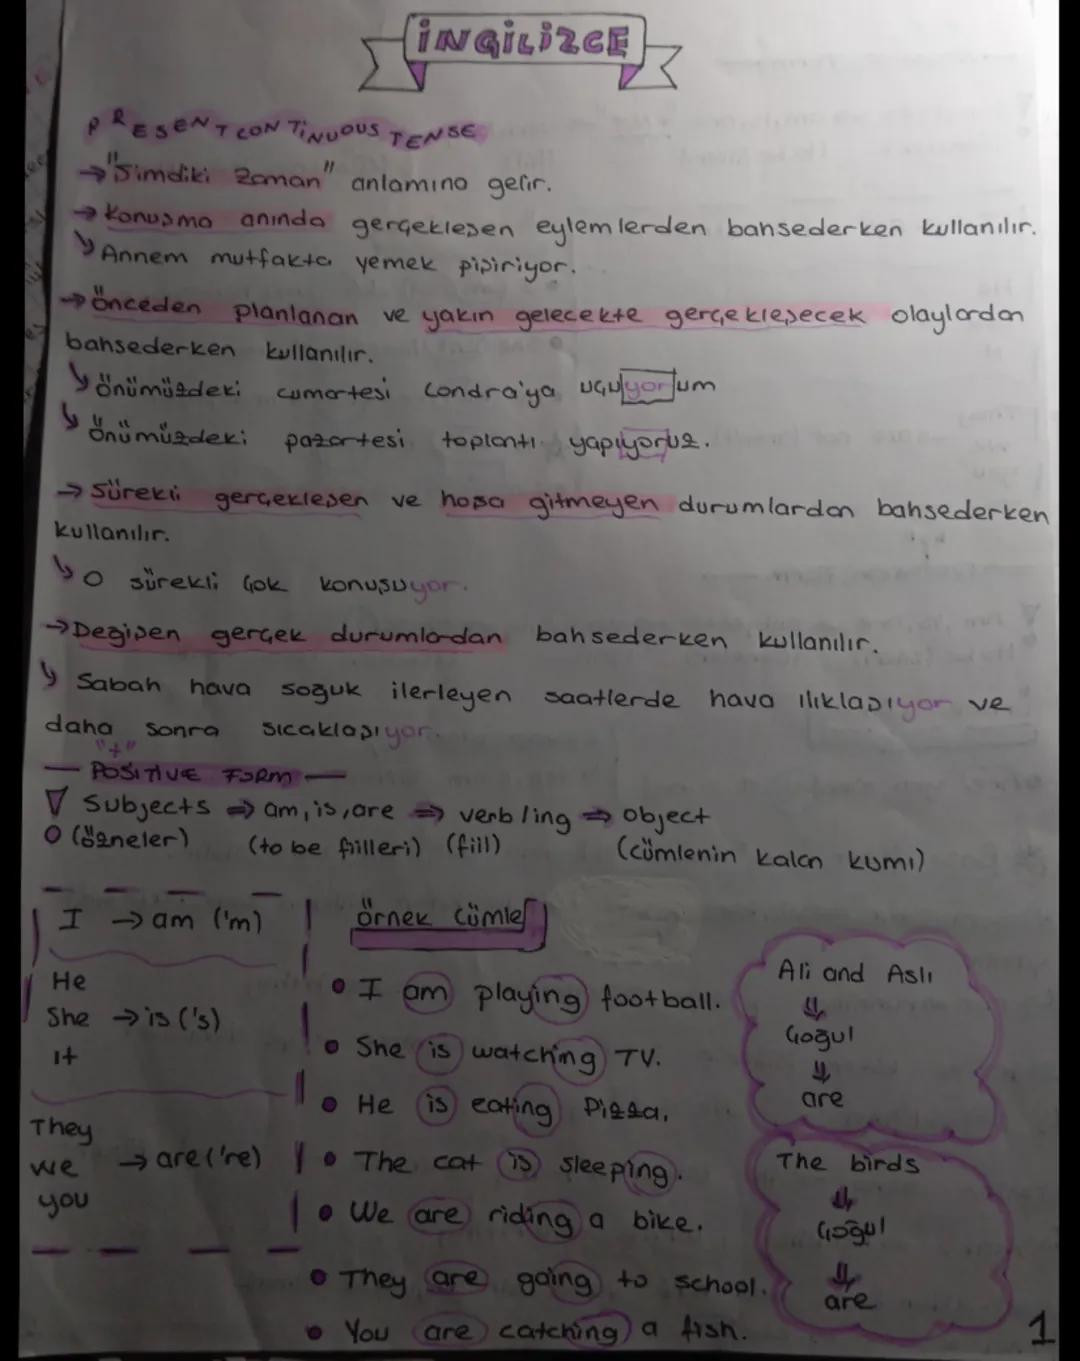 İNGİLİZCE
PRESENT CONTINUOUS TENSE
→ "Şimdiki Zaman" anlamına gelir.
→ Konuşma anında gerçekleşen eylemlerden bahsederken kullanılır.
↳ Annem mutfakta yemek pişiriyor.
→ Önceden planlanan ve yakın gelecekte gerçekleşecek olaylardan
bahsederken kullanılır.
↳ Önümüzdeki cumartesi Londra'ya uçuyorum
↳ Önümüzdeki pazartesi toplantı yapıyoruz.
→ Sürekli gerçekleşen ve hoşa gitmeyen durumlardan bahsederken
kullanılır.
↳ O sürekli çok konuşuyor.
→ Değişen gerçek durumladan bahsederken kullanılır.
↳ Sabah hava soğuk ilerleyen saatlerde hava ılıklaşıyor ve
daha sonra sıcaklaşıyor.
"+"
— POSITIVE FORM —
Subjects ⇒ am, is, are ⇒ verb/ing ⇒ object
(özneler) (to be fiilleri) (fiil) (cümlenin kalan kısmı)
I → am ('m)
He
She → is ('s)
it
They
we → are ('re)
you
örnek Cümle
• I am playing football.
• She is watching TV.
• He is eating Pizza.
• The cat is sleeping.
• We are riding a bike.
• They are going to school.
• You are catching a fish.
Ali and Aslı
⇓
Çoğul
⇓
are
The birds
⇓
Çoğul
⇓
are
1